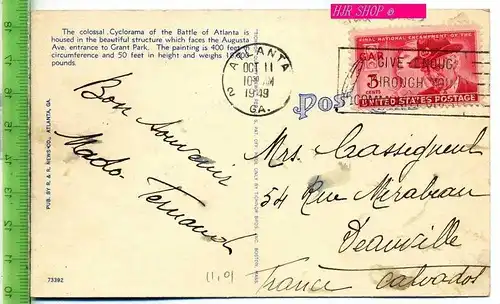 HJR-SHOP ©
The colossal Cyclorama of the Battle of Atlanta is
housed in the beautiful structure which faces the Augusta
Ave. entrance to Grant Park. The painting is 400 feet
circumference and 50 feet in height and weighs
pounds.
ATLANTA
OCT 11
1949
GA.
2
GAR
3
CENTS
UNITED STATES POSTAGE
GIVE ENOUGH
THROUGH YOUR
Post
Bon Souvenir
Mado Fernand
Mrs. Crassigneul
54 Rue Mirabeau
Deauville
France Calvados
PUB. BY R. & R. NEWS CO., ATLANTA, GA.
73392